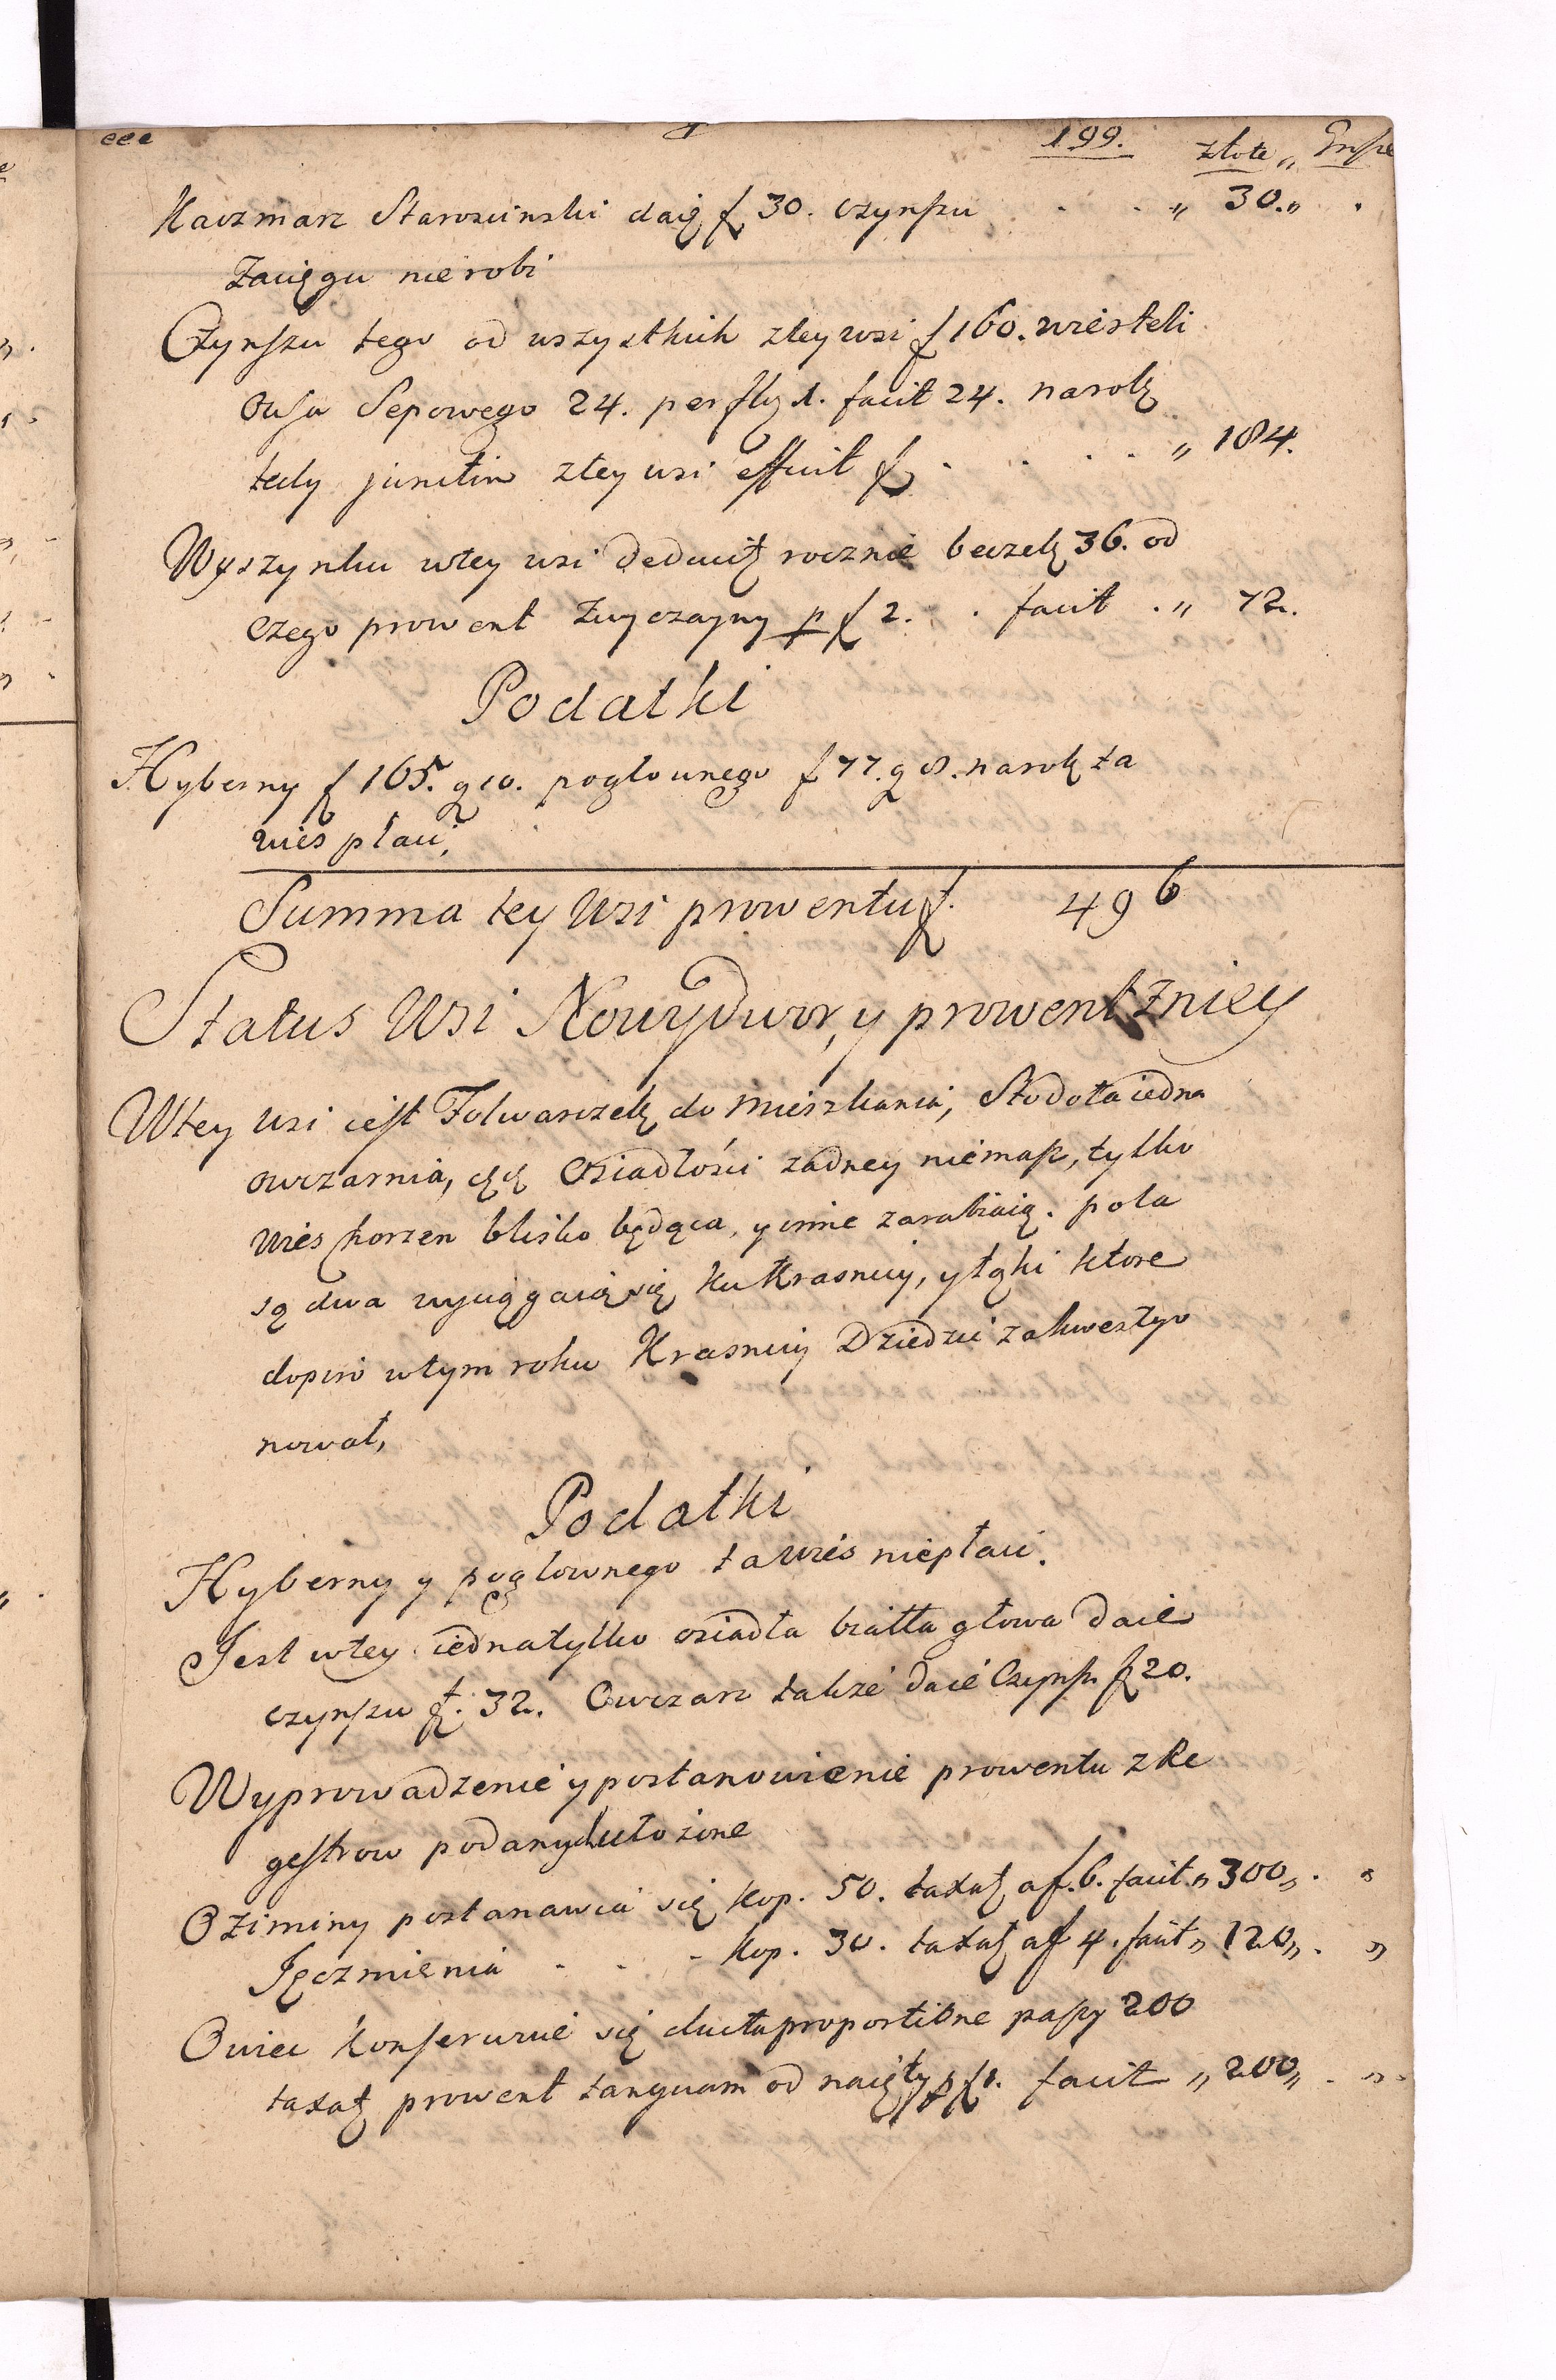 eee 199. złote „ Grosze
Kaczmarz Starosciński daię f 30. czynszu . . „ 30. „ .
Zaciągu nie robi
Czynszu tego od wszystkich ztey wsi f 160. wiesteli
Owsa Sepowego 24. per fl 1. facit 24. na rok
tedy junctim ztey wsi efficit f . . . . „ 184.
Wyszynku wtey wsi Deducit rocznie beczek 36. od
czego prowent Zwyczayny p f 2. . facit . „ 72.
Podatki
Hyberny f 165. g 10. pogłownego f 77. g 8. na rok ta
wies płaci,
Summa tey Wsi prowentu f. 496
Status Wsi Nowydwor, y prowent zniey
Wtey Wsi iest Folwarczek do Mieszkania, Stodoła iedna
owczarnia, Osiadłości zadney niemasz, tylko
wies korzen blisko będąca, y inne zarabiaią. pola
są dwa wyciągaią się ku Krasnicy, y łąki ktore
dopiro wtym roku Krasnicy Dziedzic zakwestyo
nował,
Podatki
Hyberny y pogłownego ta wies niepłaci.
Jest wtey iedna tylko osiadła białła głowa Daie
czynszu f. 32. Owczarz takze Daie Czynsz f 20.
Wyprowadzenie y postanowienie prowentu z Re
gestrow podanych ułozone
Oziminy postanawia się kop. 50. taxat a f. 6. facit „ 300 „ . „
Jęczmienia . . - kop. 30. taxat a f 4. facit „ 120 „ . „
Owiec konserwuie się ducta proportione paszy 200
taxat prowent tanquam od naięty p f 1. facit „ 200 „ . „